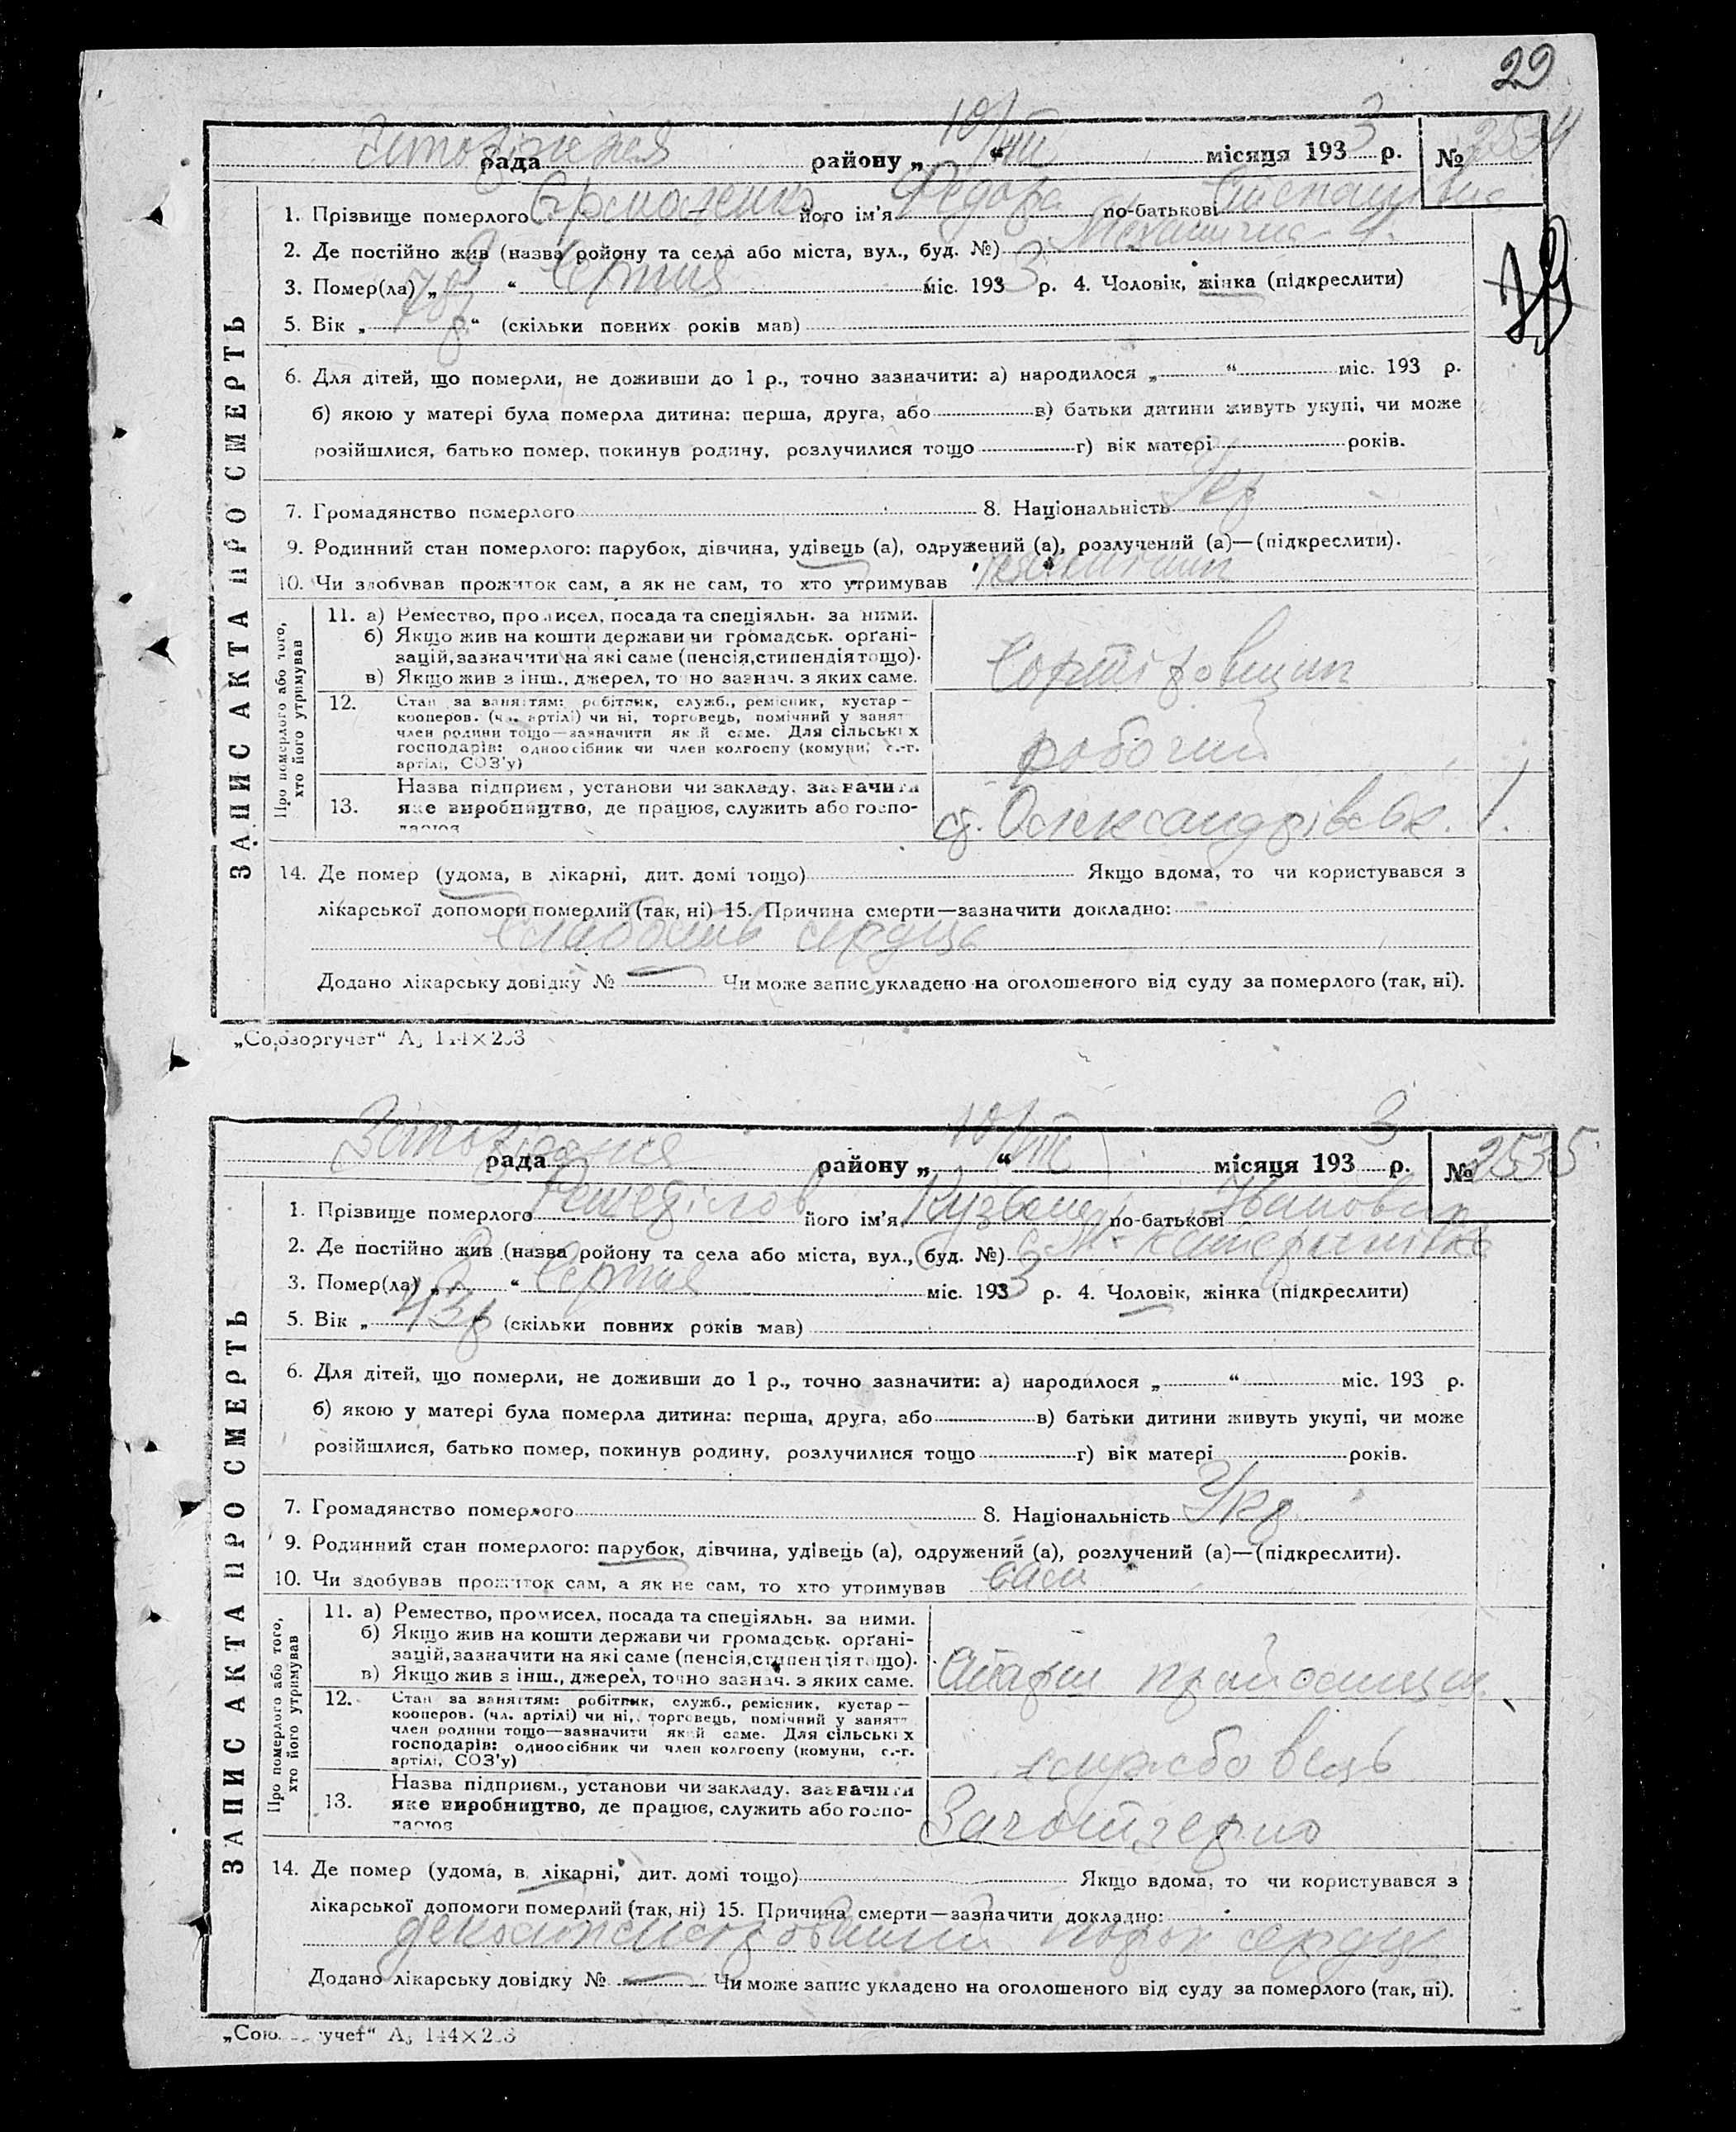 29
10/VIII 3 2534
рада району „ “ місяця 193 р. №
1. Прізвище померлого Єрмоленко його ім'я Федора по-батькові Степанівна
2. Де постійно жив (назва ройону та села або міста, вул., буд. №)
3. Помер(ла) „ 9 “ Серпня міс. 193 3 р. 4. Чоловік, жінка (підкреслити)
5. Вік „ 78 р “ (скільки повних років мав)
6. Для дітей, що померли, не доживши до 1 р., точно зазначити: а) народилося „ “ міс. 193 р.
б) якою у матері була померла дитина: перша, друга, або в) батьки дитини живуть укупі, чи може
розійшлися, батько помер, покинув родину, розлучилися тощо г) вік матері років.
7. Громадянство померлого 8. Національність Укр
9. Родинний стан померлого: парубок, дівчина, удівець (а), одружений (а), розлучений (а)—(підкреслити).
10. Чи здобував прожиток сам, а як не сам, то хто утримував
ЗАПИС АКТА ПРО СМЕРТЬ
Про померлого або того, хто його утримував
11. а) Ремество, промисел, посада та спеціяльн. за ними.
б) Якщо жив на кошти держави чи громадськ. органі-
зацій, зазначити на які саме (пенсія, стипендія тощо).
в) Якщо жив з інш., джерел, точно зазнач. з яких саме.
Сортіровщик
12. Стан за заняттям: робітник, служб., ремісник, кустар—
кооперов. (чл. артілі) чи ні, торговець, помічний у занят
член родини тощо—зазначити який саме. Для сільських
господарів: одноосібник чи член колгоспу (комуни, с.-г.
артілі, СОЗ'у)
робочий
13. Назва підприєм., установи чи закладу, зазначити
яке виробництво, де працює, служить або госпо-
дарює
ст. Олександрівськ. 1.
14. Де помер (удома, в лікарні, дит. домі тощо) Якщо вдома, то чи користувався з
лікарської допомоги померлий (так, ні) 15. Причина смерти—зазначити докладно:
Слабость сердця
Додано лікарську довідку № — Чи може запис укладено на оголошеного від суду за померлого (так, ні).
„Союзоргучет“ А5 144×203
10/VIII 3 2535
рада району „ “ місяця 193 р. №
1. Прізвище померлого його ім'я Кузьма по-батькові Іванович
2. Де постійно жив (назва ройону та села або міста, вул., буд. №) с. М-Катеринівка
3. Помер(ла) „ 8 “ Серпня міс. 193 3 р. 4. Чоловік, жінка (підкреслити)
5. Вік „ 43 р “ (скільки повних років мав)
6. Для дітей, що померли, не доживши до 1 р., точно зазначити: а) народилося „ “ міс. 193 р.
б) якою у матері була померла дитина: перша, друга, або в) батьки дитини живуть укупі, чи може
розійшлися, батько помер, покинув родину, розлучилися тощо г) вік матері років.
7. Громадянство померлого 8. Національність Укр
9. Родинний стан померлого: парубок, дівчина, удівець (а), одружений (а), розлучений (а)—(підкреслити).
10. Чи здобував прожиток сам, а як не сам, то хто утримував сам
ЗАПИС АКТА ПРО СМЕРТЬ
Про померлого або того, хто його утримував
11. а) Ремество, промисел, посада та спеціяльн. за ними.
б) Якщо жив на кошти держави чи громадськ. органі-
зацій, зазначити на які саме (пенсія, стипендія тощо).
в) Якщо жив з інш., джерел, точно зазнач. з яких саме.
12. Стан за заняттям: робітник, служб., ремісник, кустар—
кооперов. (чл. артілі) чи ні, торговець, помічний у занят
член родини тощо—зазначити який саме. Для сільських
господарів: одноосібник чи член колгоспу (комуни, с.-г.
артілі, СОЗ'у)
службовець
13. Назва підприєм., установи чи закладу, зазначити
яке виробництво, де працює, служить або госпо-
дарює
Заготзерно
14. Де помер (удома, в лікарні, дит. домі тощо) Якщо вдома, то чи користувався з
лікарської допомоги померлий (так, ні) 15. Причина смерти—зазначити докладно:
порок сердця
Додано лікарську довідку № — Чи може запис укладено на оголошеного від суду за померлого (так, ні).
„Союзоргучет“ А5 144×203